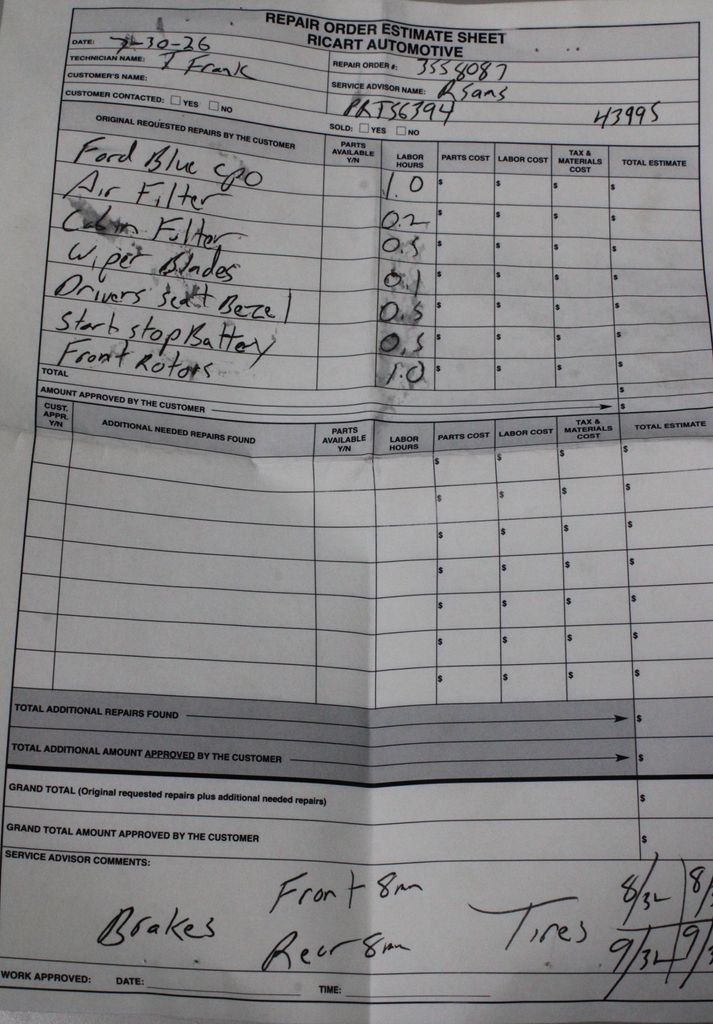 REPAIR ORDER ESTIMATE SHEET
RICART AUTOMOTIVE
DATE: 7-30-26
TECHNICIAN NAME: I Frank
REPAIR ORDER #: 3558087
CUSTOMER'S NAME:
SERVICE ADVISOR NAME: RSams
CUSTOMER CONTACTED: YES NO
PRTS6394 43995
SOLD: YES NO
ORIGINAL REQUESTED REPAIRS BY THE CUSTOMER PARTS AVAILABLE Y/N LABOR HOURS PARTS COST LABOR COST TAX & MATERIALS COST TOTAL ESTIMATE
Ford Blue CPO 1.0 $ $ $ $
Air Filter 0.2 $ $ $ $
Cabin Filter 0.5 $ $ $ $
Wiper Blades 0.1 $ $ $ $
Drivers seat Bezel 0.5 $ $ $ $
Start stop Battery 0.5 $ $ $ $
Front Rotors 1.0 $ $ $ $
TOTAL $
AMOUNT APPROVED BY THE CUSTOMER $
CUST. APPR. Y/N ADDITIONAL NEEDED REPAIRS FOUND PARTS AVAILABLE Y/N LABOR HOURS PARTS COST LABOR COST TAX & MATERIALS COST TOTAL ESTIMATE
$ $ $ $
$ $ $ $
$ $ $ $
$ $ $ $
$ $ $ $
$ $ $ $
$ $ $ $
TOTAL ADDITIONAL REPAIRS FOUND $
TOTAL ADDITIONAL AMOUNT APPROVED BY THE CUSTOMER $
GRAND TOTAL (Original requested repairs plus additional needed repairs) $
GRAND TOTAL AMOUNT APPROVED BY THE CUSTOMER $
SERVICE ADVISOR COMMENTS:
Brakes Front 8mm
Rear 8mm
Tires 8/32 8/3
9/32 9/3
WORK APPROVED: DATE: TIME: